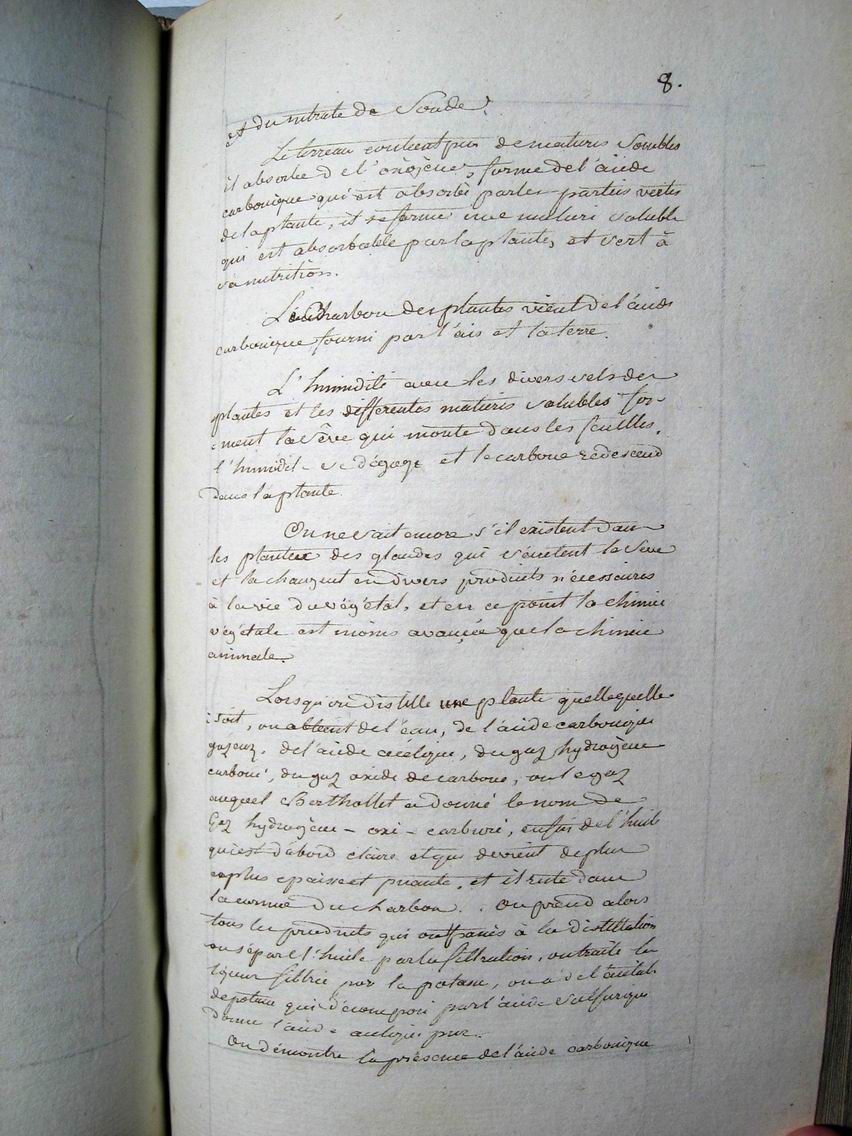 8.
et du nitrate de Soude.
Le terreau contient peu de matieres solubles
il absorbe de l'oxigène, forme de l'acide
carbonique qui est absorbé par les parties vertes
de la plante, il se forme une matiere soluble
qui est absorbable par la plante, et sert à
sa nutrition.
Le Charbon des plantes vient de l'acide
carbonique fourni par l'air et la terre.
L'humidité avec les divers sels des
plantes et les differentes matieres solubles for-
-ment la sêve qui monte dans les feuilles,
l'humidit se dégage et le carbone redescend
dans la plante.
On ne sait encore s'il existent dans
les plantes des glandes qui sécretent la seve
et la changent en divers produits nécessaires
à la vie du végétal, et en ce point la chimie
végétale est moins avancée que la chimie
animale.
Lorsqu'on distille une plante quelle quelle
soit, on obtient de l'eau, de l'acide carbonique
gazeux, de l'acide acétique, du gaz hydrogène
carboné, du gaz oxide de carbone, ou le gaz
auquel Berthollet a donné le nom de
Gaz hydrogène - oxi - carburé, enfin de l'huile
qui est d'abord claire et qui devient de plus
en plus epaisse et puante, et il reste dans
la cornue du charbon. On prend alors
tous les produits qui ont passés à la distillation
on sépare l'huile par la filtration, on traite la
liqueur filtrée par la potasse, on a de l'acétate
de potasse qui décomposé par l'acide sulfurique
donne l'acide acétique pur.
On démontre la présence de l'acide carbonique